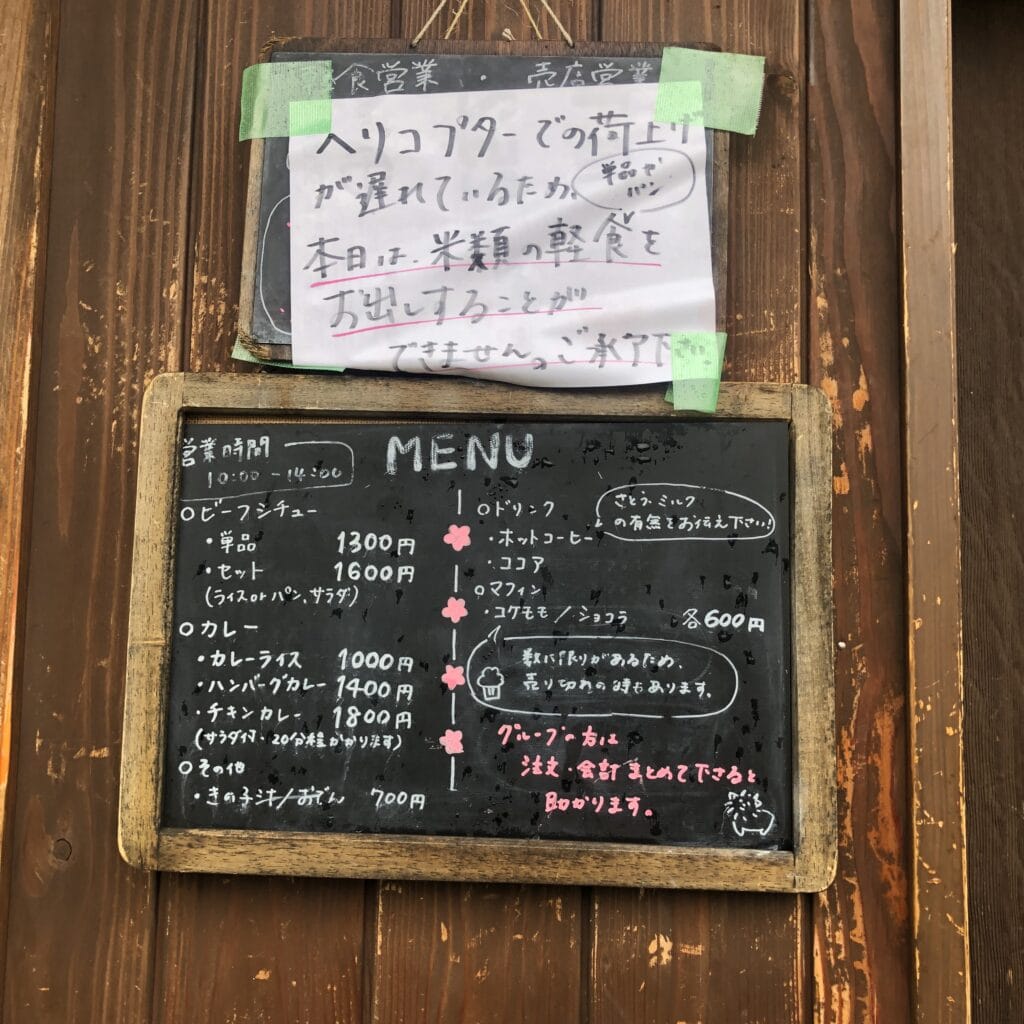 食営業・売店営業
ヘリコプターでの荷上げ
が遅れているため、
単品や
パン
本日は、米類の軽食を
お出しすることが
できません。ご承了下さい。
MENU
営業時間
10:00-14:00
○ビーフシチュー
・単品 1300円
・セット 1600円
(ライスorパン、サラダ)
○カレー
・カレーライス 1000円
・ハンバーグカレー 1400円
・チキンカレー 1800円
(サラダ付・20分程かかります)
○その他
・きの子汁/おでん 700円
○ドリンク
さとう、ミルク
の有無をお伝え下さい!
・ホットコーヒー
・ココア
○マフィン
・コケモモ/ショコラ 各600円
数に限りがあるため、
売り切れの時もあります。
グループの方は
注文・会計まとめて下さると
助かります。